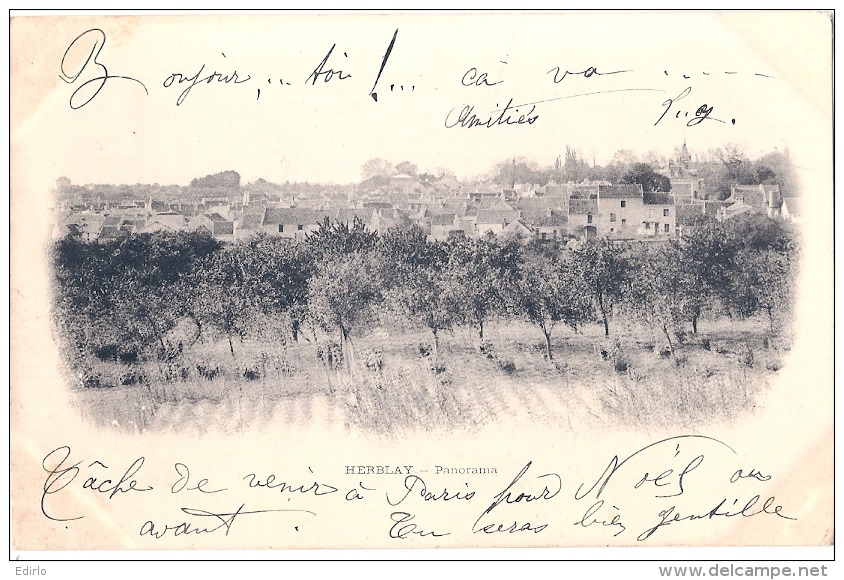 Bonjour,.. toi !... cà va .....
Amitiés Lucy.
HERBLAY — Panorama
Tâche de venir à Paris pour Noël ou
avant. Tu seras bien gentille
Edirlo
www.delcampe.net